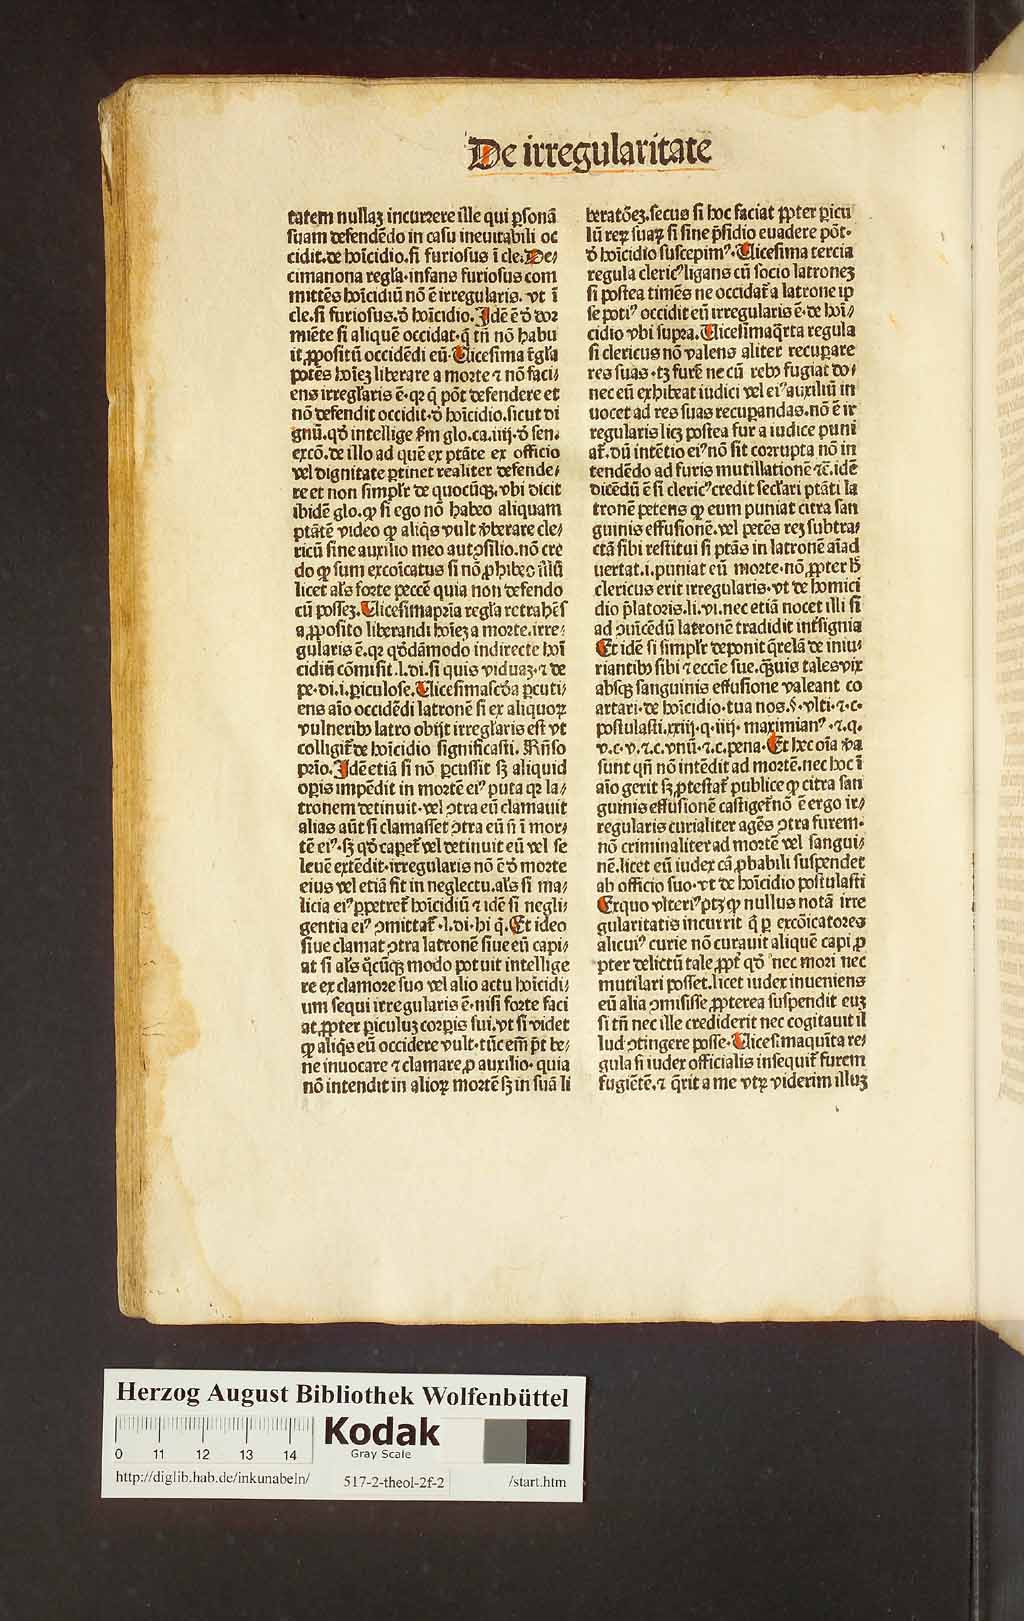 De irregularitate
tatem nullaꝫ incurrere ille qui ꝑsonã
suam defendẽdo in casu ineuitabili oc
cidit.de hoĩcidio.si furiosus ĩ cle.De⸗
cimanona regl̃a·infans furiosus com
mittẽs hoĩcidiũ nõ ẽ irregularis. vt ĩ
cle.si furiosus.ð hoĩcidio.Idẽ ẽ ð dor
miẽte si aliquẽ occidat·q̃ tñ nõ habu
it ꝓpositũ occidẽdi eũ·Uicesima r̃gl̃a
potẽs hoĩeꝫ liberare a morte ⁊ nõ faci⸗
ens irregl̃aris ẽ·qꝛ q̃ põt defendere et
nõ defendit occidit·ð hoĩcidio.sicut di
gnũ.qð intellige ẜm glo.ca.iiij·ð sen.
excõ.de illo ad quẽ ex ptãte ex officio
vel dignitate ꝑtinet realiter defende⸗
re et non simpl̃r de quocũqꝫ.vbi dicit
ibidẽ glo.ꝙ si ego nõ habeo aliquam
ptãtẽ video ꝙ aliq̃s vult ṽberare cle⸗
ricũ sine auxilio meo aut ꝯsilio.nõ cre
do ꝙ sum excoĩcatus si nõ ꝓhibeo illũ
licet al̃s forte peccẽ quia non defendo
cũ posseꝫ.Uicesimaprĩa regl̃a retrahẽs
a ꝓposito liberandi hoĩeꝫ a morte.irre⸗
gularis ẽ.qꝛ qðdãmodo indirecte hoĩ
cidiũ cõmisit.l.di.si quis viduaꝫ·⁊ de
pe·di.i.ꝑiculose.Uicesimascð̃a ꝑcuti⸗
ens aĩo occidẽdi latronẽ si ex aliquoꝝ
vulneribꝰ latro obijt irregl̃aris est vt
colligit̃ de hoĩcidio significasti. Rñso
prĩo.Idẽ etiã si nõ ꝑcussit sꝫ aliquid
oꝑis impẽdit in mortẽ eiꝰ puta qꝛ la⸗
tronem detinuit·vel ꝯtra eũ clamauit
alias aũt si clamasset ꝯtra eũ si ĩ mor⸗
tẽ eiꝰ.sꝫ qð caꝑet̃ vel detinuit eũ vel se
leuẽ extẽdit·irregularis nõ ẽ ð morte
eius vel etiã sit in neglectu.al̃s si ma⸗
licia eiꝰ ꝑpetret̃ hoĩcidiũ ⁊ idẽ si negli
gentia eiꝰ ꝯmittat̃·l.di·hi q̃.Et ideo
siue clamat ꝯtra latronẽ siue eũ capi⸗
at si al̃s q̃cũqꝫ modo potuit intellige
re ex clamore suo vel alio actu hoĩcidi⸗
um sequi irregularis ẽ·nisi forte faci
at ꝓpter ꝑiculuꝫ corꝑis sui.vt si videt
ꝙ aliq̃s eũ occidere vult·tũc em̃ p̃t be⸗
ne inuocare ⁊ clamare ꝓ auxilio·quia
nõ intendit in alioꝝ mortẽ sꝫ in suã li
beratõeꝫ.secus si hoc faciat ꝓpter ꝑicu
lũ reꝝ suaꝝ si sine p̃sidio euadere põt·
ð hoĩcidio suscepimꝰ.Uicesima tercia
regula clericꝰ ligans cũ socio latroneꝫ
si postea timẽs ne occidat̃ a latrone ip
se potiꝰ occidit eũ irregularis ẽ·de hoĩ⸗
cidio vbi supra.Uicesimaq̃rta regula
si clericus nõ valens aliter recuꝑare
res suas·tꝫ furẽ ne cũ rebꝰ fugiat do⸗
nec eũ exhibeat iudici vel eiꝰ auxiliũ in
uocet ad res suas recuꝑandas.nõ ẽ ir
regularis licꝫ postea fur a iudice puni
at̃.dũ intẽtio eiꝰ nõ sit corrupta nõ in
tendẽdo ad furis mutillationẽ ⁊c̃.idẽ
dicẽdũ ẽ si clericꝰ credit secl̃ari ptãti la
tronẽ petens ꝙ eum puniat citra san
guinis effusionẽ.vel petẽs reꝫ subtra⸗
ctã sibi restitui si ptãs in latronẽ aĩad
uertat.i.puniat eũ morte·nõ ꝓpter h̃
clericus erit irregularis·vt de homici
dio p̃latoris.li.vi.nec etiã nocet illi si
ad ꝯuicẽdũ latronẽ tradidit int̃signia
Et idẽ si simpl̃r deponit q̃relã de iniu⸗
riantibꝰ sibi ⁊ eccĩe sue.q̃uis tales vix
absqꝫ sanguinis effusione valeant co
artari·de hoĩcidio·tua nos.§·vlti·⁊·c·
postulasti.xxiij·q·iiij·maximianꝰ·⁊.q.
v.c·v.⁊.c.vnũ·⁊.c.pena·Et hec oĩa ṽa
sunt qñ nõ intẽdit ad mortẽ.nec hoc ĩ
aĩo gerit sꝫ ꝓtestat̃ publice ꝙ citra san
guinis effusionẽ castiget̃ nõ ẽ ergo ir⸗
regularis curialiter agẽs ꝯtra furem·
nõ criminaliter ad mortẽ vel sangui⸗
nẽ.licet eũ iudex cã ꝓbabili suspendet
ab officio suo·vt de hoĩcidio postulasti
Ex quo vlteriꝰ ptꝫ ꝙ nullus notã irre
gularitatis incurrit q̃ ꝑ excõicatores
alicuiꝰ curie nõ curauit aliquẽ capi ꝓ
pter delictũ tale ꝓpt̃ qð nec mori nec
mutilari posset.licet iudex inueniens
eũ alia ꝯmisisse ꝓpterea suspendit euꝫ
si tñ nec ille crediderit nec cogitauit il
lud ꝯtingere posse·Uicesimaquĩta re⸗
gula si iudex officialis insequit̃ furem
fugiẽtẽ.⁊ q̃rit a me vtꝝ viderim illuꝫ
Herzog August Bibliothek Wolfenbüttel
0 11 12 13 14
Kodak
Gray Scale
http://diglib.hab.de/inkunabeln/ 517-2-theol-2f-2 /start.htm